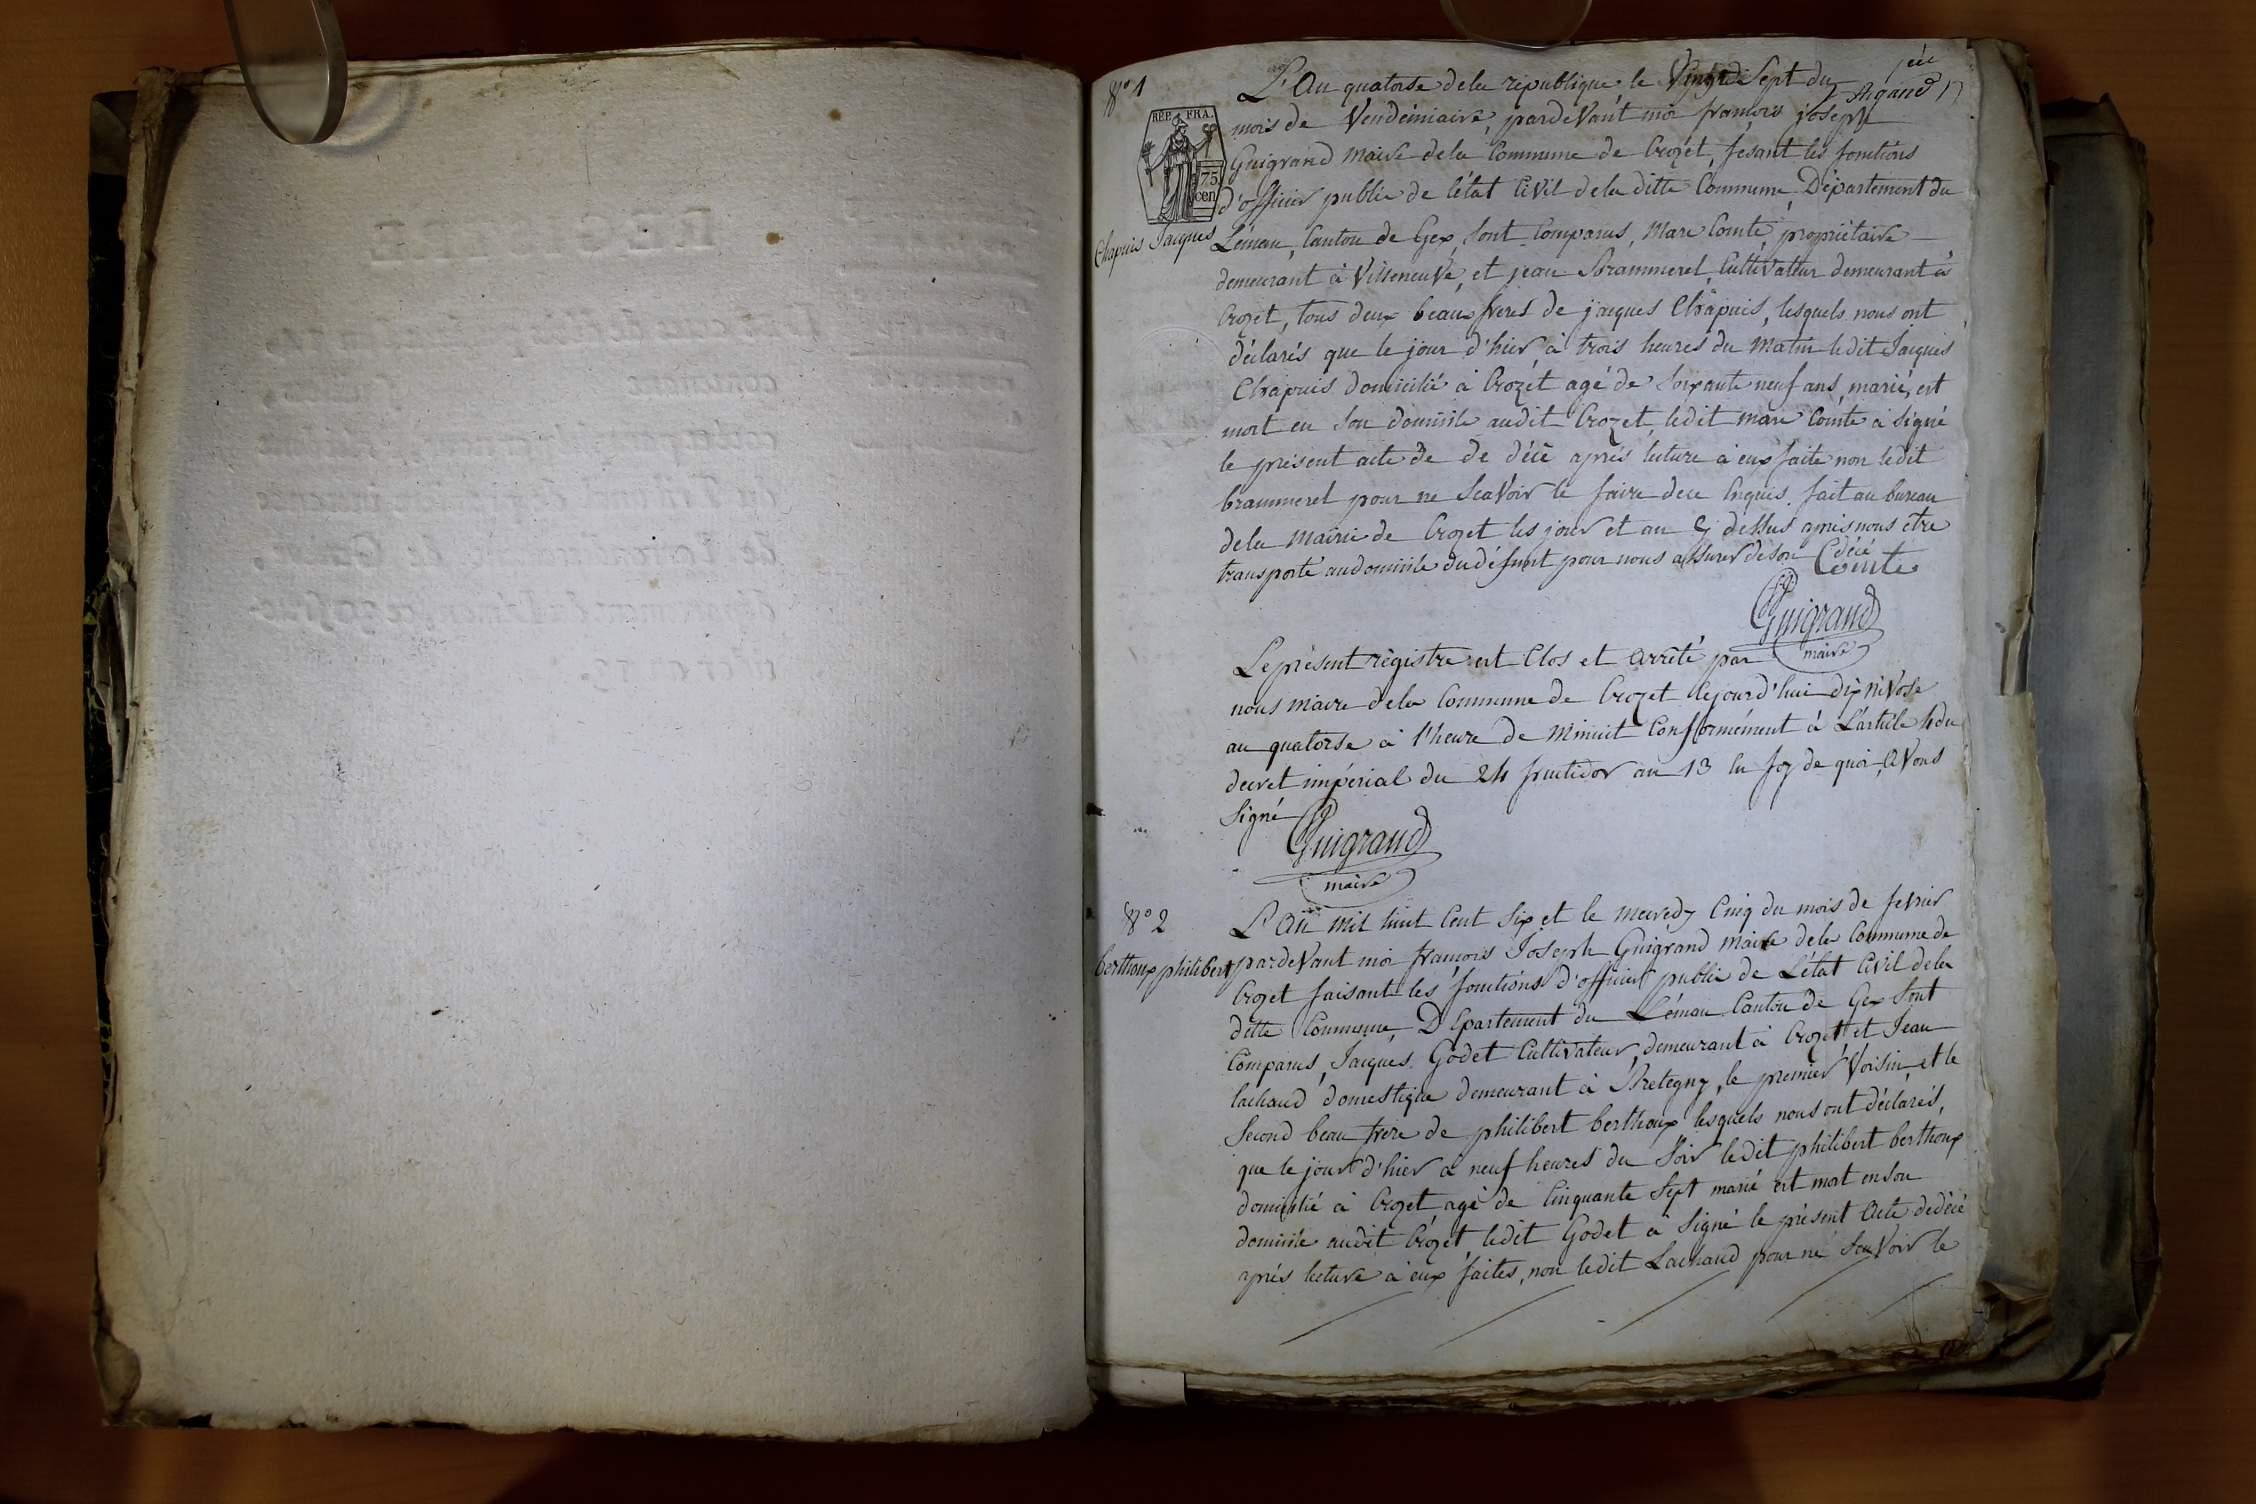 N° 1
REP. FRA.
75
cen
Chapuis Jacques
L'An quatorse dela république le Vingt Sept du
mois de Vendémiaire, pardeVant moi françois joseph
Guigrand Maire dela Commune de Crozet, fesant les fonctions
d'officier public de l'état CiVil dela ditte Commune, Département du
Léman, Canton de Gex, sont Comparus, Marc Comte, propriétaire
demeurant à VilleneuVe, et jean Brammerel, CultiVateur demeurant à
Crozet, tous deux beaux freres de jacques Chapuis, lesquels nous ont
déclarés que le jour d'hier, à trois heures du Matin ledit Jacques
Chapuis domicilié à Crozet agé de Soixante neuf ans, marié, est
mort en Son domicile audit Crozet, ledit Marc Comte a Signé
le présent acte de de décé après lecture à eux faite non ledit
brammerel pour ne ScaVoir le faire dece Enquis, fait au bureau
dela Mairie de Crozet les jour et an Cy dessus après nous être
transporté audomicile dudéfunt pour nous assurer deson décé
Comte
Guigrand
maire
Leprésent régistre est Clos et arrêté par
nous Maire dela Commune de Crozet Cejourd'hui dix niVose
an quatorse à l'heure de Minuit Conformément à L'article 4 du
decret impérial du 24 fructidor an 13 En foy de quoi, aVons
Signé
Guigrand
maire
N° 2
berthoux philibert
L'An Mil huit Cent Six et le Mecredy Cinq du mois de feVrier
pardeVant moi françois Joseph Guigrand maire dela Commune de
Crozet faisant les fonctions d'officier public de L'état CiVil dela
ditte Commune, Département du Léman Canton de Gex Sont
Comparus, Jacques Godet CultiVateur, demeurant à Crozet, et Jean
Lachaud domestique demeurant à Bretegny, le premier Voisin, et le
Second beau frere de philibert berthoux lesquels nous ont déclarés,
que le jour d'hier à neuf heures du Soir ledit philibert berthoux
domicilié à Crozet agé de Cinquante Sept marié est mort en Son
domicile audit Crozet ledit Godet a Signé le présent Acte dedécé
après lecture à eux faites, non ledit Lachaud pour ne ScaVoir le